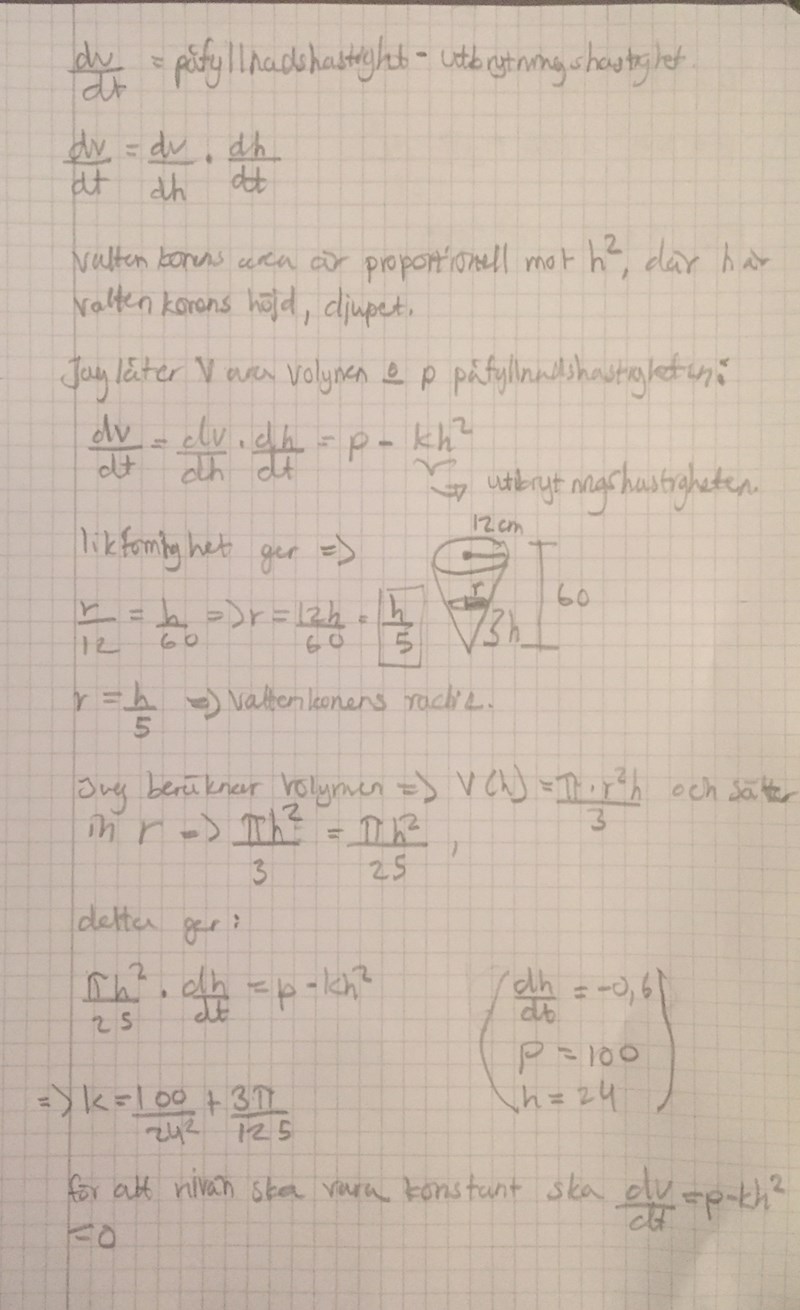 dv/dt = påfyllnadshastighet - utbrytningshastighet.
dv/dt = dv/dh · dh/dt
vattenkonens area är proportionell mot h², där h är
vattenkonens höjd, djupet.
Jag låter V vara volymen & p påfyllnadshastigheten:
dv/dt = dv/dh · dh/dt = p - kh²
↳ utbrytningshastigheten.
12cm
likformighet ger =>
r/12 = h/60 => r = 12h/60 = h/5
r
3h
60
r = h/5 => vattenkonens radie.
Jag beräknar volymen => V(h) = π·r²h/3 och sätter
in r => πh²/3 = πh²/25,
detta ger:
πh²/25 · dh/dt = p - kh²
dh/dt = -0,6
p = 100
h = 24
=> k = 100/24² + 3π/125
för att nivån ska vara konstant ska dv/dt = p - kh²
= 0